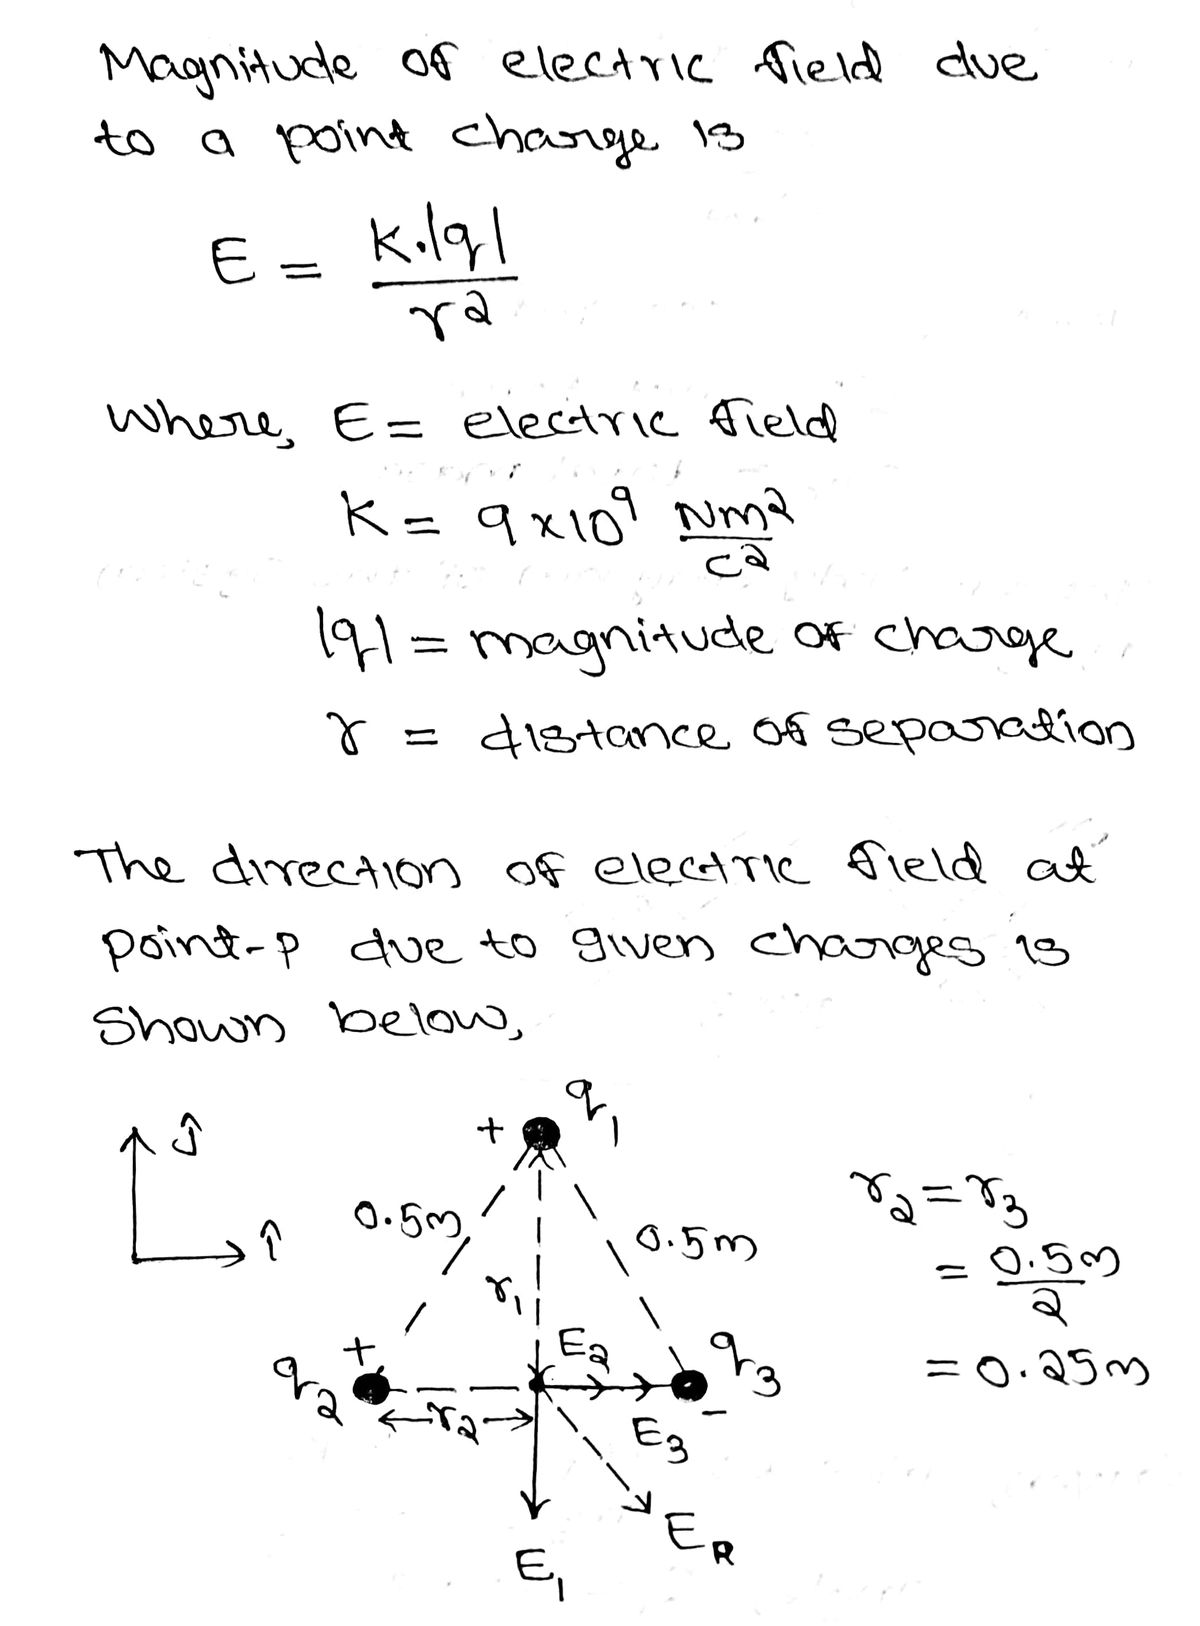 Magnitude of electric field due
to a point charge is
E = K.|q| / r²
Where, E = electric field
K = 9×10⁹ Nm²/C²
|q| = magnitude of charge
r = distance of separation
The direction of electric field at
point-P due to given charges is
shown below,
ĵ
î
+ q₁
0.5m
0.5m
r₁
r₂ = r₃
= 0.5m / 2
= 0.25m
q₂ +
E₂
q₃ -
r₂
E₃
E_R
E₁